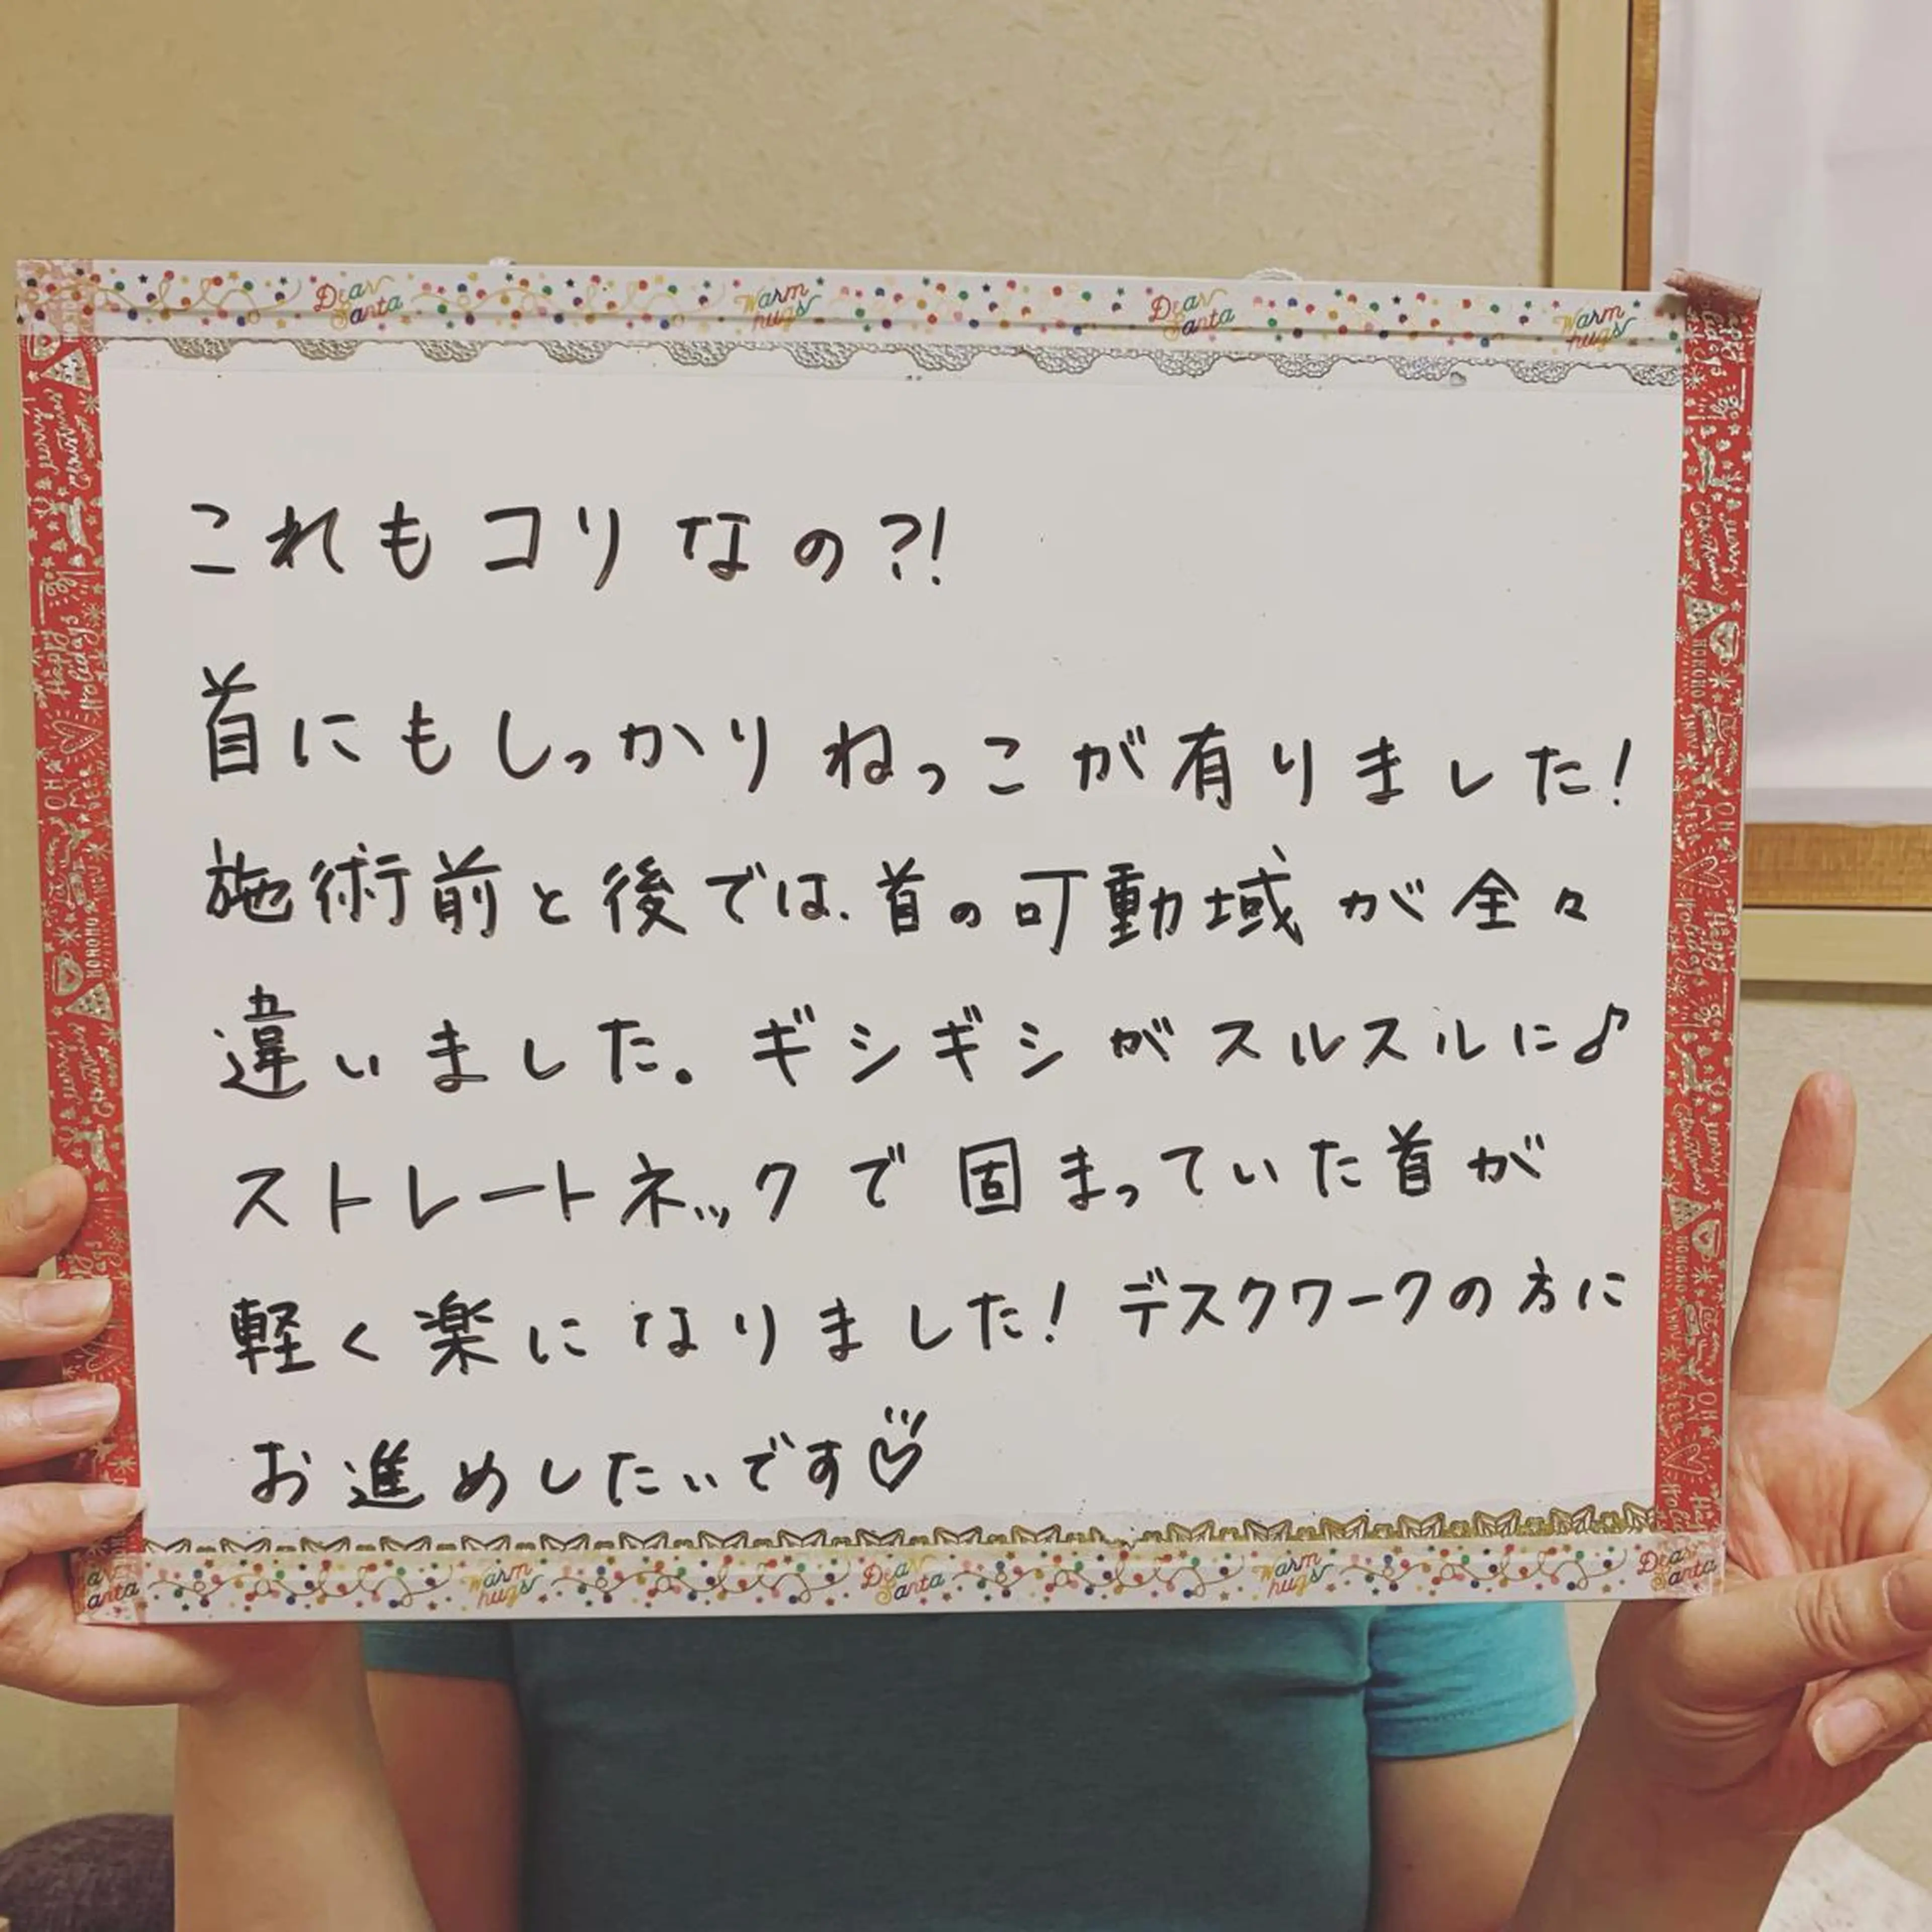 Dear Santa Warm hugs Dear Santa Warm hugs
これもコリなの?!
首にもしっかりねっこが有りました!
施術前と後では、首の可動域が全々
違いました。ギシギシがスルスルに♪
ストレートネックで固まっていた首が
軽く楽になりました! デスクワークの方に
お進めしたいです♡
Warm hugs Dear Santa Warm hugs Dear Santa